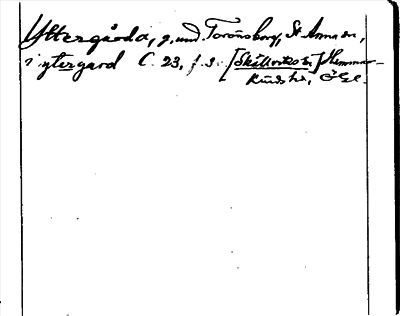 Yttergårda, g. und. Torönsborg, St Anna sn,
i ytergard C. 23, f. 3. [Skällviks hd.] Hammar-
kinds hd, Ögl.